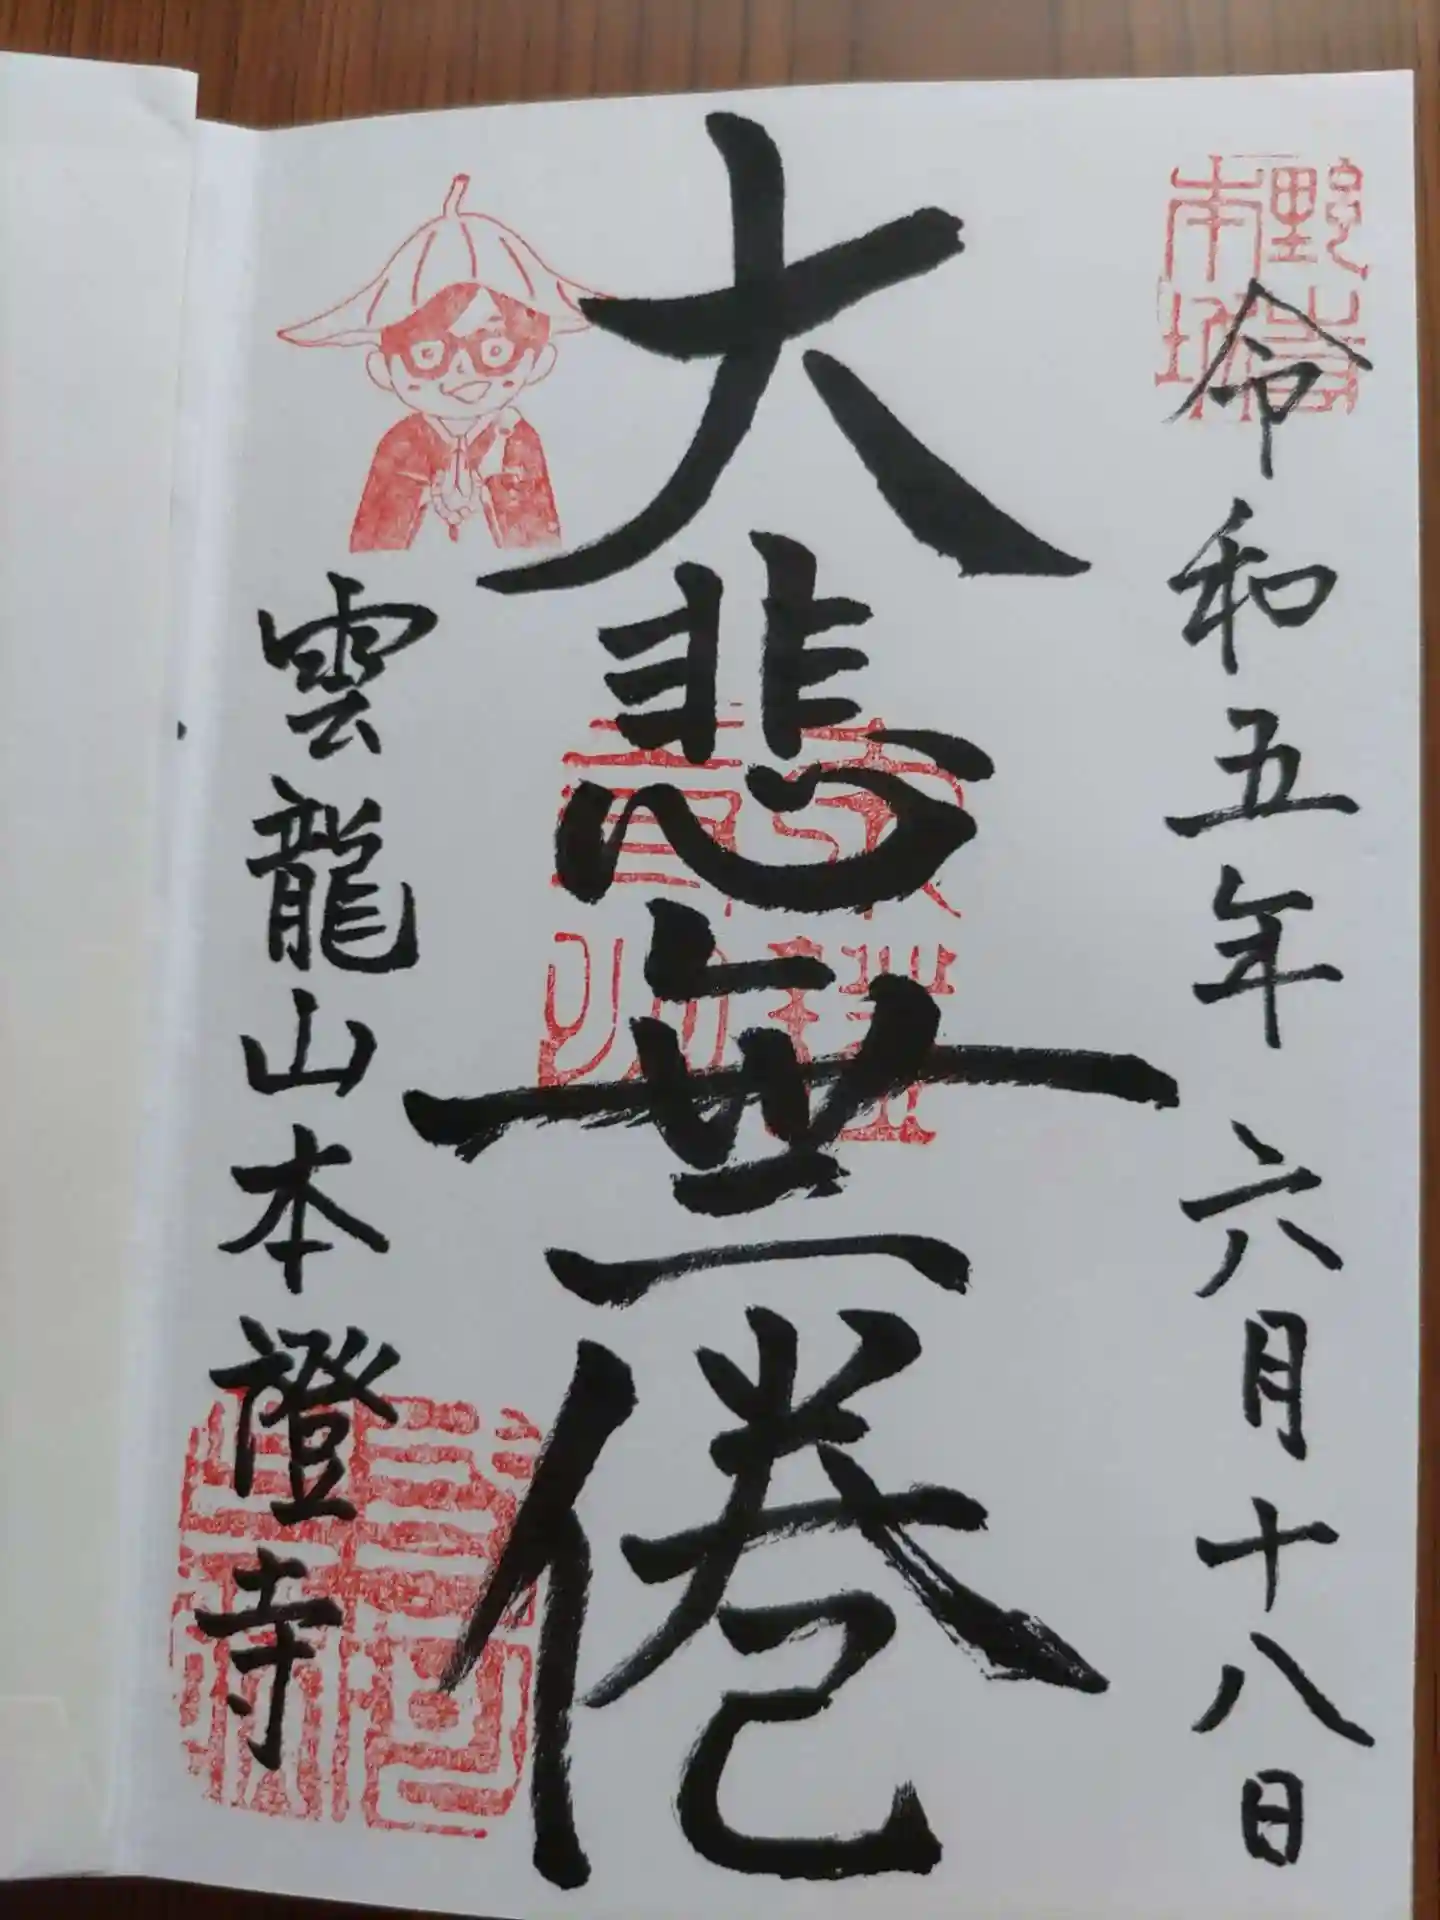 令和五年六月十八日
野寺本坊
大悲無倦
雲龍山本證寺